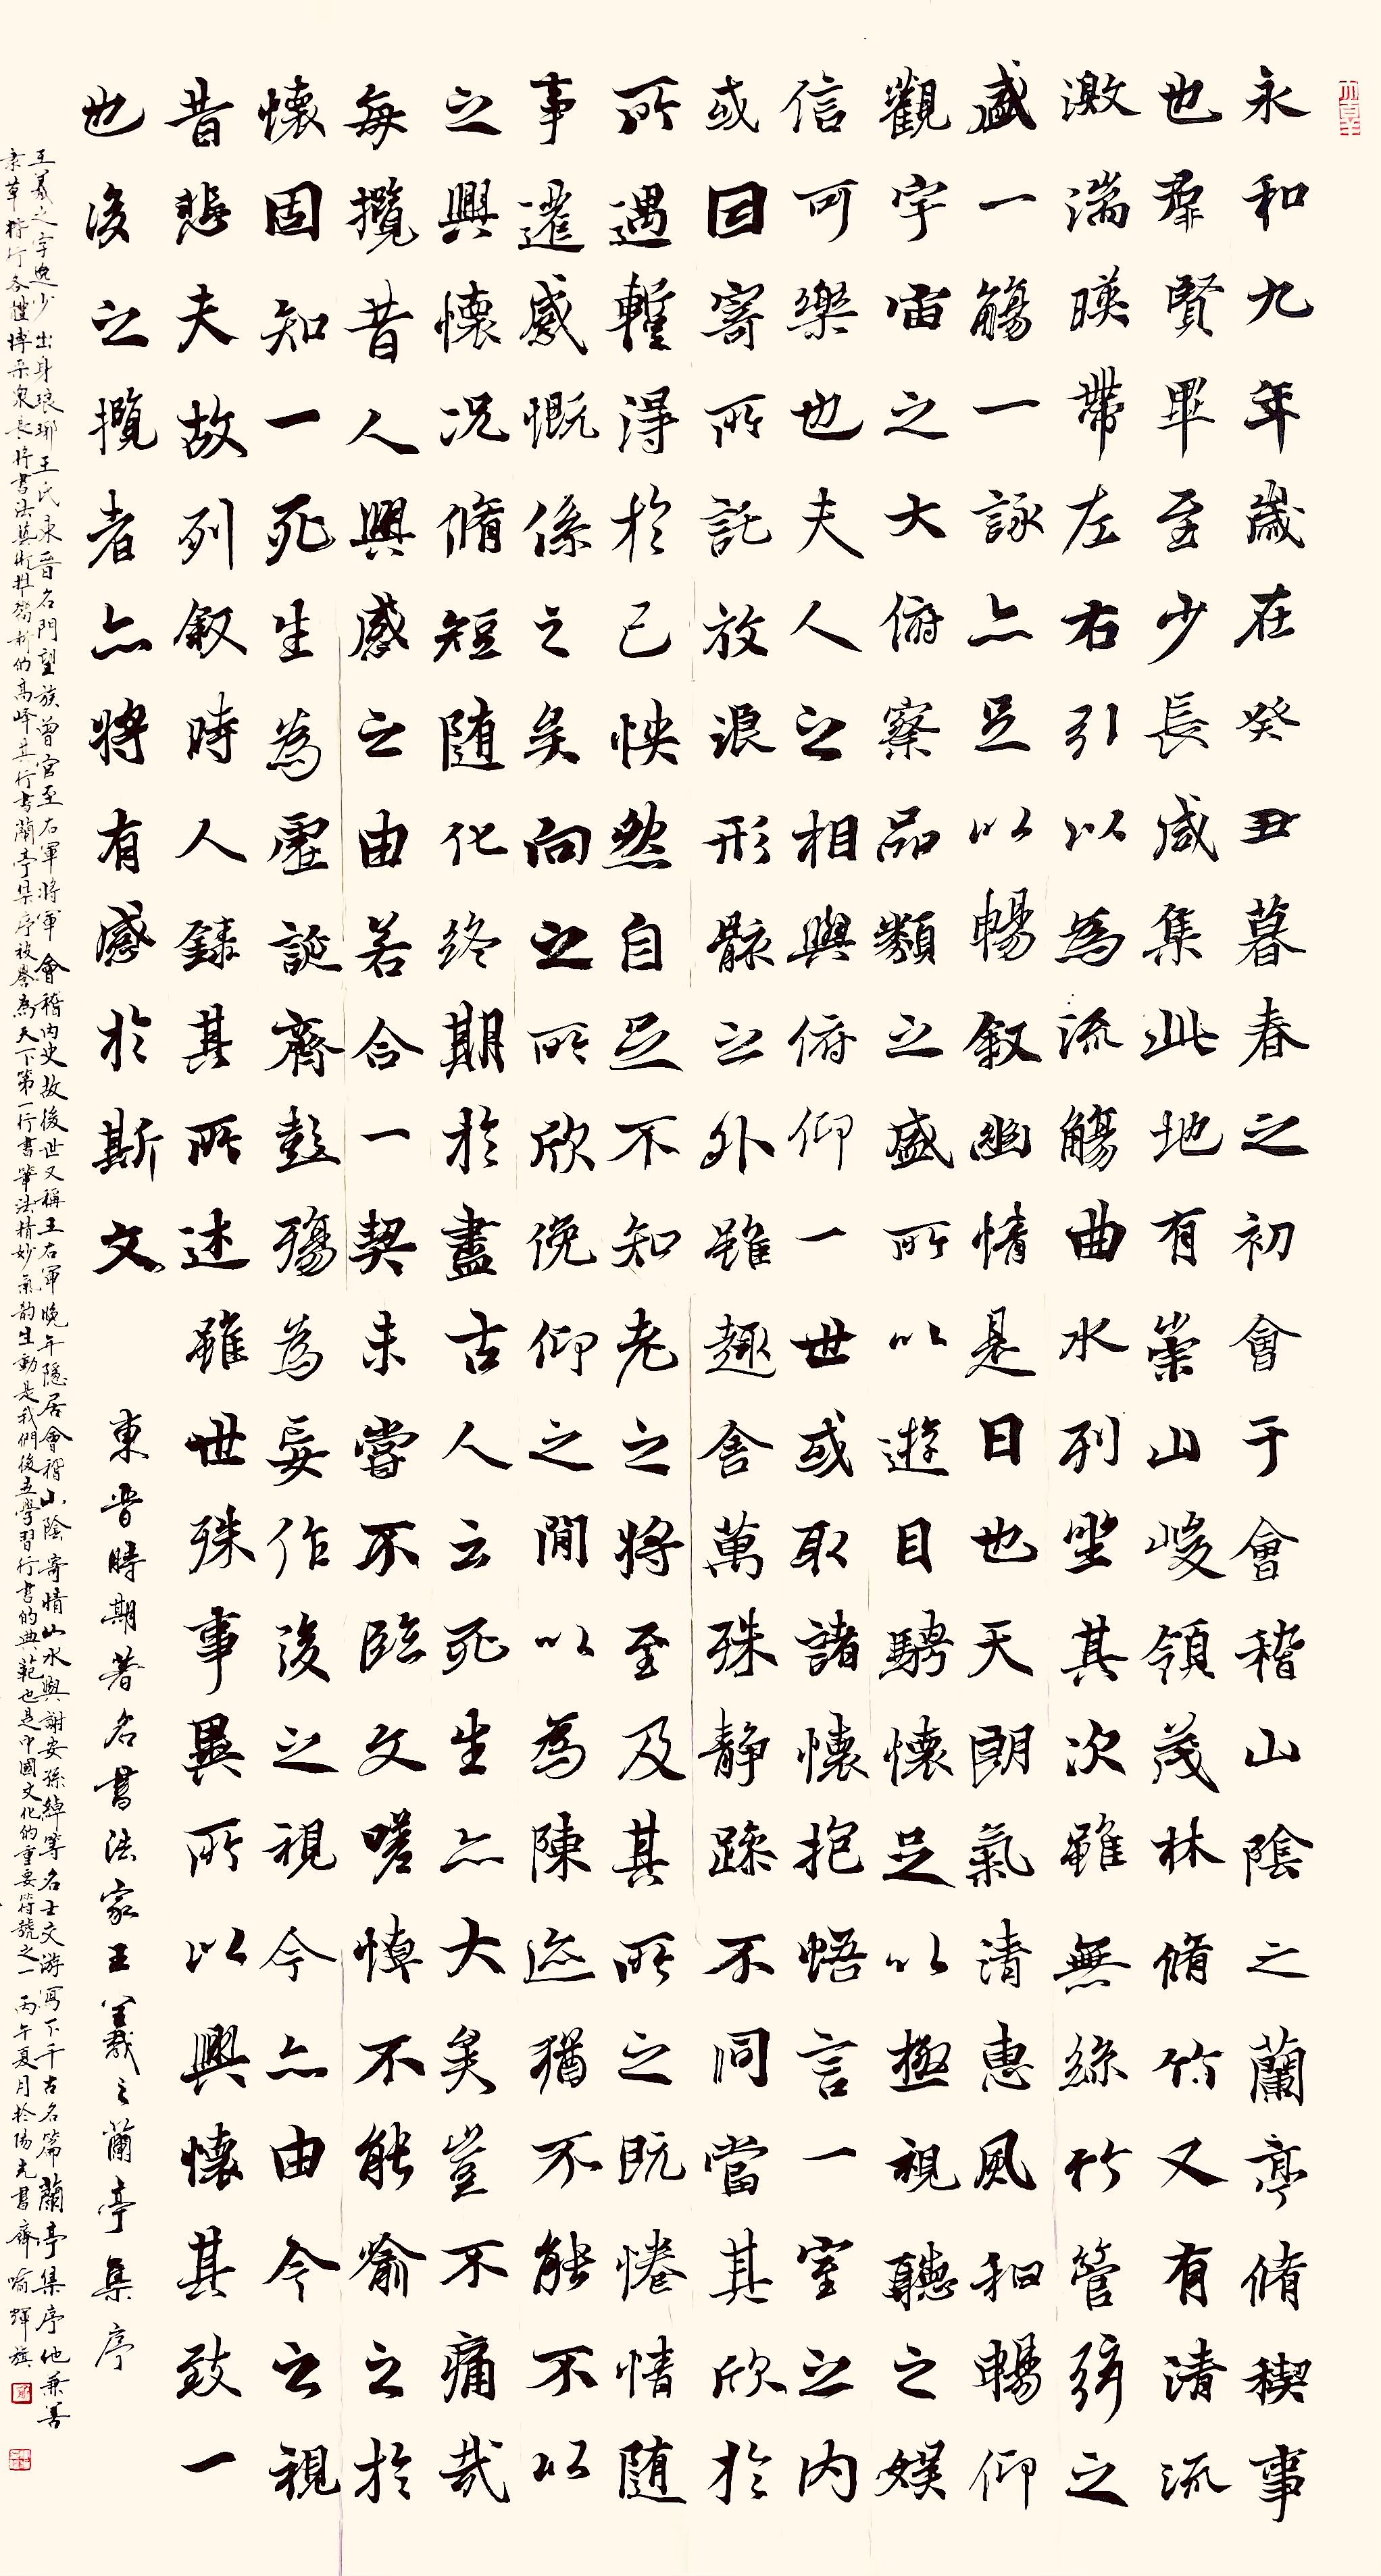 永和九年歲在癸丑暮春之初會于會稽山陰之蘭亭脩稧事
也羣賢畢至少長咸集此地有崇山峻領茂林脩竹又有清流
激湍暎帶左右引以為流觴曲水列坐其次雖無絲竹管弦之
盛一觴一詠亦足以暢敘幽情是日也天朗氣清惠風和暢仰
觀宇宙之大俯察品類之盛所以遊目騁懷足以極視聽之娛
信可樂也夫人之相與俯仰一世或取諸懷抱悟言一室之內
或因寄所託放浪形骸之外雖趣舍萬殊靜躁不同當其欣於
所遇暫得於己怏然自足不知老之將至及其所之既惓情隨
事遷感慨係之矣向之所欣俛仰之間以為陳迹猶不能不以
之興懷況脩短隨化終期於盡古人云死生亦大矣豈不痛哉
每攬昔人興感之由若合一契未嘗不臨文嗟悼不能喻之於
懷固知一死生為虛誕齊彭殤為妄作後之視今亦由今之視
昔悲夫故列敘時人錄其所述雖世殊事異所以興懷其致一
也後之攬者亦將有感於斯文 東晉時期著名書法家王羲之蘭亭集序
王羲之字逸少出身琅琊王氏東晉名門望族曾官至右軍將軍會稽內史故後世又稱王右軍晚年隱居會稽山陰寄情山水與謝安孫綽等名士交游寫下千古名篇蘭亭集序他兼善
隸草楷行各體博采眾長將書法藝術推向新的高峰其行書蘭亭集序被譽為天下第一行書筆法精妙氣韵生動是我們後世學習行書的典範也是中國文化的重要符號之一丙午夏月於陽光書齋喻輝旗